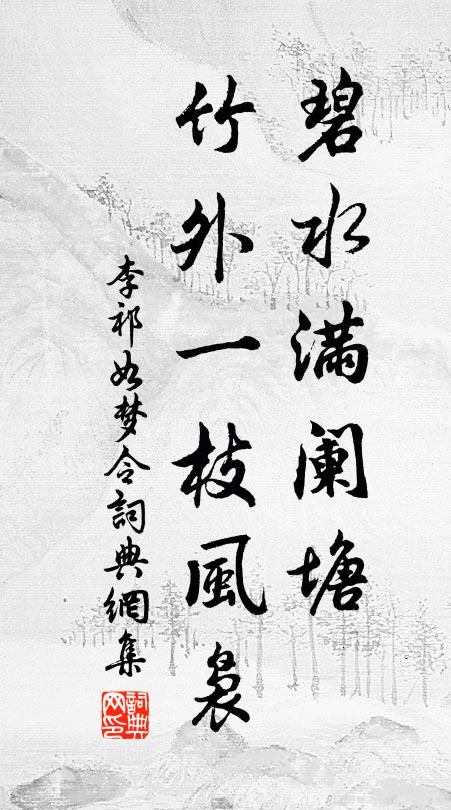 碧水满阑塘
竹外一枝風袅
李祁如梦令詞典網集
詞典网印